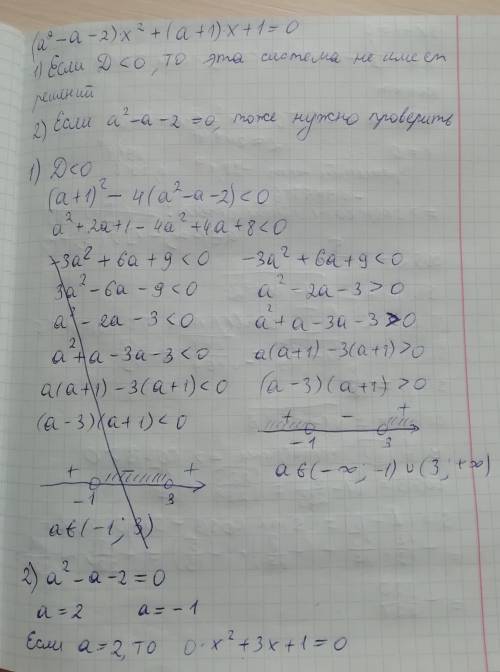 (a²-a-2)x²+(a+1)x+1=0
1) Если D<0, то эта система не имеет
решений
2) Если a²-a-2=0, тоже нужно проверить
1) D<0
(a+1)²-4(a²-a-2)<0
a²+2a+1-4a²+4a+8<0
-3a²+6a+9<0 -3a²+6a+9<0
3a²-6a-9<0 a²-2a-3>0
a²-2a-3<0 a²+a-3a-3>0
a²+a-3a-3<0 a(a+1)-3(a+1)>0
a(a+1)-3(a+1)<0 (a-3)(a+1)>0
(a-3)(a+1)<0 + - +
-1 3
+ - + a∈(-∞; -1)∪(3; +∞)
-1 3
a∈(-1; 3)
2) a²-a-2=0
a=2 a=-1
Если a=2, то 0·x²+3x+1=0